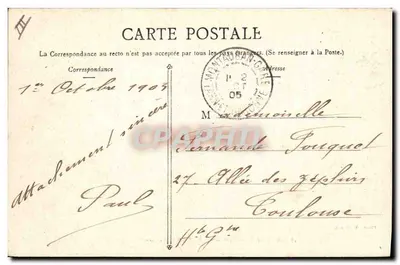 CARTE POSTALE
La Correspondance au recto n'est pas acceptée par tous les pays étrangers. (Se renseigner à la Poste)
Correspondance
Adresse
1er Octobre 1905
Attachement sincère
Paul
Mademoiselle
Fernande Fouquot
27 Allée des Zéphirs
Toulouse
Hte Gne
05